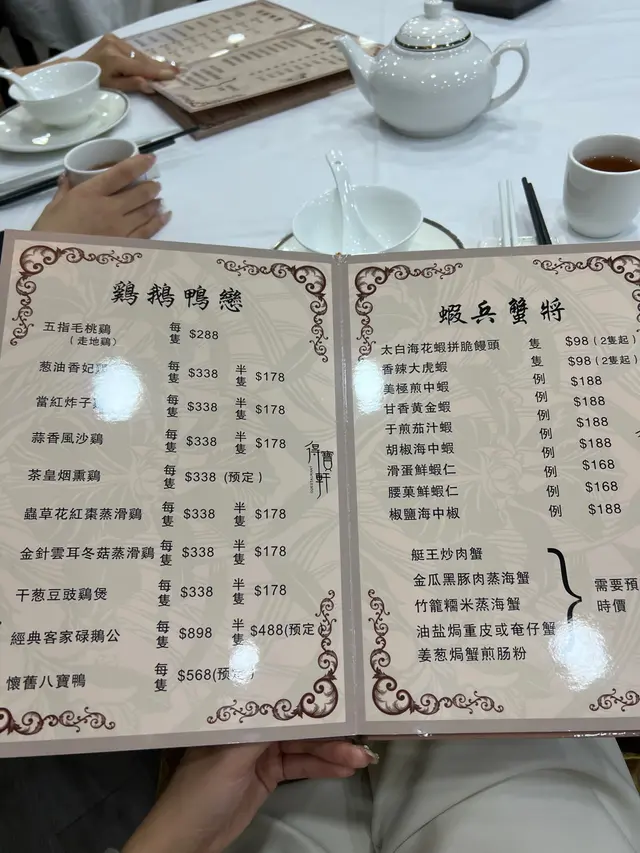 鷄鵝鴨戀
五指毛桃鷄 每隻 $288
(走地鷄)
葱油香妃 每隻 $338 半隻 $178
當紅炸子 每隻 $338 半隻 $178
蒜香風沙鷄 每隻 $338 半隻 $178
茶皇烟熏鷄 每隻 $338 (预定)
蟲草花紅棗蒸滑鷄 每隻 $338 半隻 $178
金針雲耳冬菇蒸滑鷄 每隻 $338 半隻 $178
干葱豆豉鷄煲 每隻 $338 半隻 $178
經典客家碌鵝公 每隻 $898 半隻 $488(预定)
懷舊八寶鴨 每隻 $568(预定)
得寶軒
蝦兵蟹將
太白海花蝦拼脆饅頭 隻 $98 (2隻起)
香辣大虎蝦 隻 $98 (2隻起)
美極煎中蝦 例 $188
甘香黄金蝦 例 $188
干煎茄汁蝦 例 $188
胡椒海中蝦 例 $188
滑蛋鮮蝦仁 例 $168
腰菓鮮蝦仁 例 $168
椒鹽海中椒 例 $188
艇王炒肉蟹
金瓜黑豚肉蒸海蟹
竹籠糯米蒸海蟹
油盐焗重皮或奄仔蟹
姜葱焗蟹煎肠粉
需要預
時價